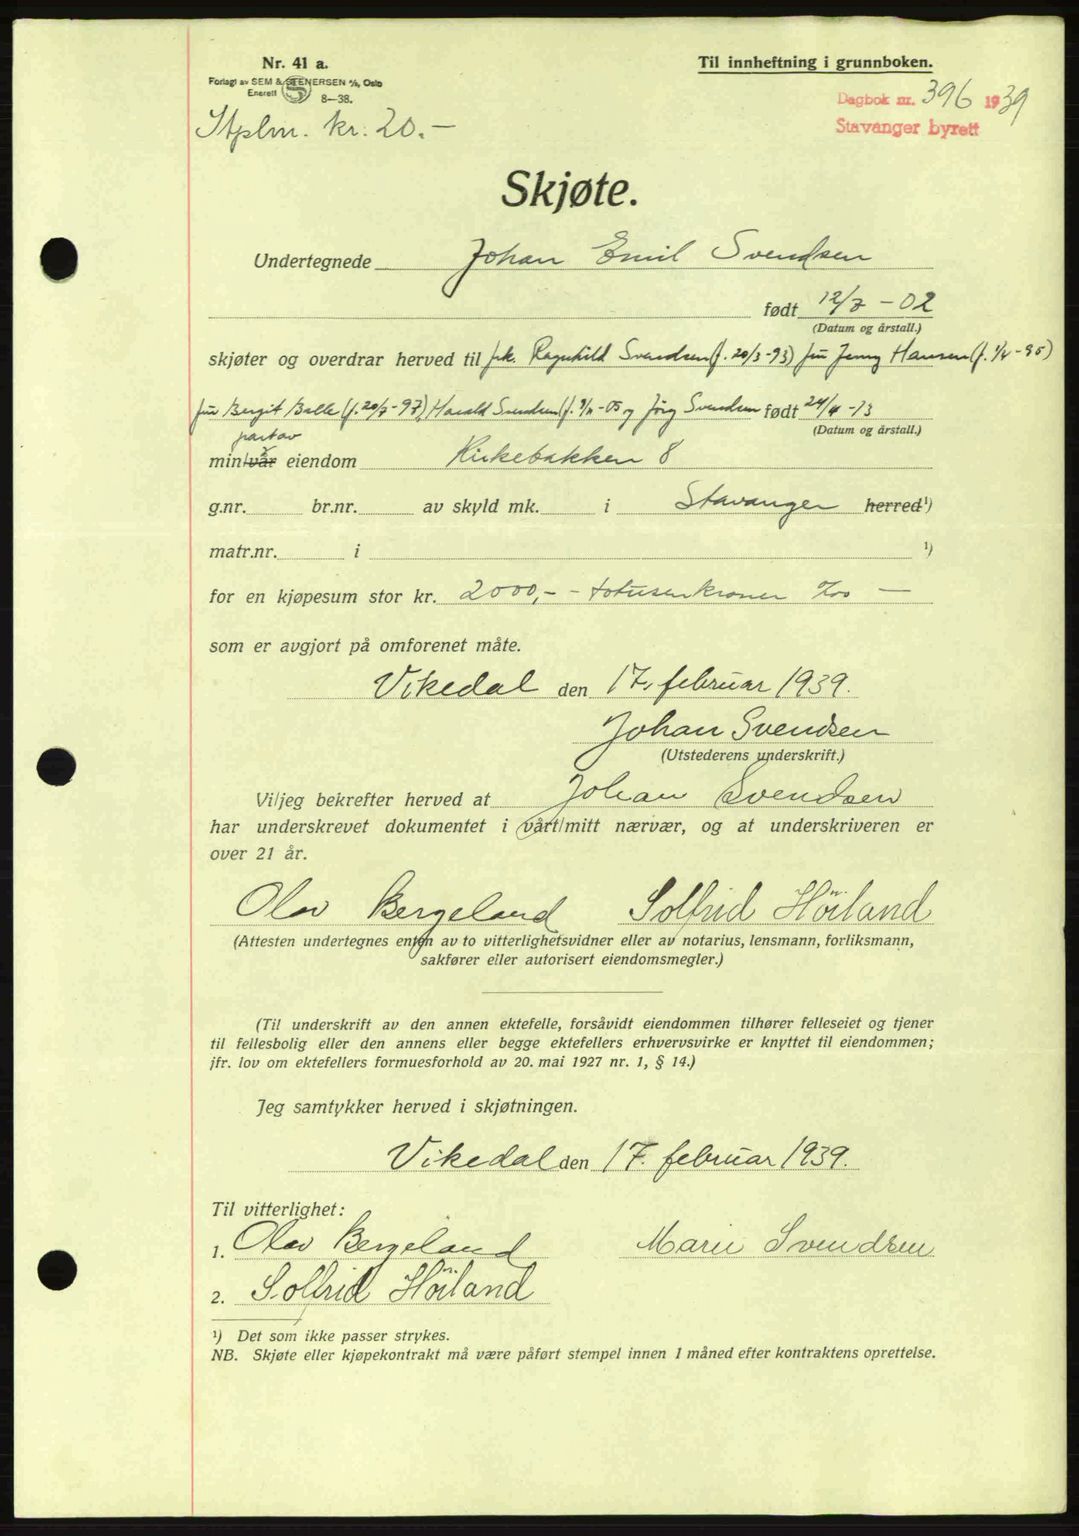 Nr. 41 a.
Til innheftning i grunnboken.
Forlagt av SEM & STENERSEN A/S, Oslo
Enerett 8–38.
Dagbok nr. 396 1939
Stavanger byrett
Stplm. kr. 20.–
Skjøte.
Undertegnede Johan Emil Svendsen
født 12/7 – 02
(Datum og årstall.)
skjøter og overdrar herved til frk. Ragnhild Svendsen (f. 20/3 -93) fru Jenny Hansen (f. -95)
fru Bergit Balle (f. 20/7 -97) Harald Svendsen (f. -05 og Jörg Svendsen født 24/4 -13
(Datum og årstall.)
partav
min/vår eiendom Kirkebakken 8
g.nr. br.nr. av skyld mk. i Stavanger herred ¹)
matr.nr. i ¹)
for en kjøpesum stor kr. 2000,– – totusenkroner –
som er avgjort på omforenet måte.
Vikedal den 17. februar 1939.
Johan Svendsen
(Utstederens underskrift.)
Vi/jeg bekrefter herved at Johan Svendsen
har underskrevet dokumentet i vårt/mitt nærvær, og at underskriveren er
over 21 år.
Olav Bergeland Solfrid Höiland
(Attesten undertegnes enten av to vitterlighetsvidner eller av notarius, lensmann, forliksmann,
sakfører eller autorisert eiendomsmegler.)
(Til underskrift av den annen ektefelle, forsåvidt eiendommen tilhører felleseiet og tjener
til fellesbolig eller den annens eller begge ektefellers erhvervsvirke er knyttet til eiendommen;
jfr. lov om ektefellers formuesforhold av 20. mai 1927 nr. 1, § 14.)
Jeg samtykker herved i skjøtningen.
Vikedal den 17. februar 1939.
Til vitterlighet:
1. Olav Bergeland Marie Svendsen
2. Solfrid Höiland
¹) Det som ikke passer strykes.
NB. Skjøte eller kjøpekontrakt må være påført stempel innen 1 måned efter kontraktens oprettelse.